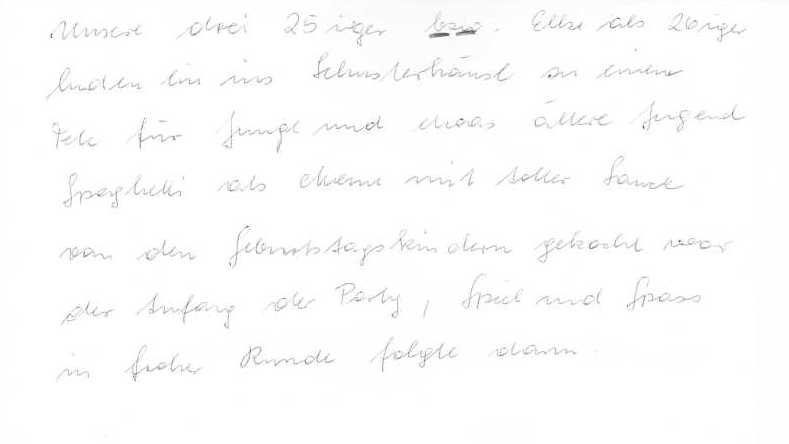 Unsere drei 25iger bzw. Elke als 26iger
luden ein ins Schusterhäusl zu einem
Fete für Junge und etwas ältere Jugend
Spaghetti als Menü mit toller Sauce
von den Geburtstagskindern gekocht war
der Anfang der Party, Spiel und Spass
in froher Runde folgte dann.